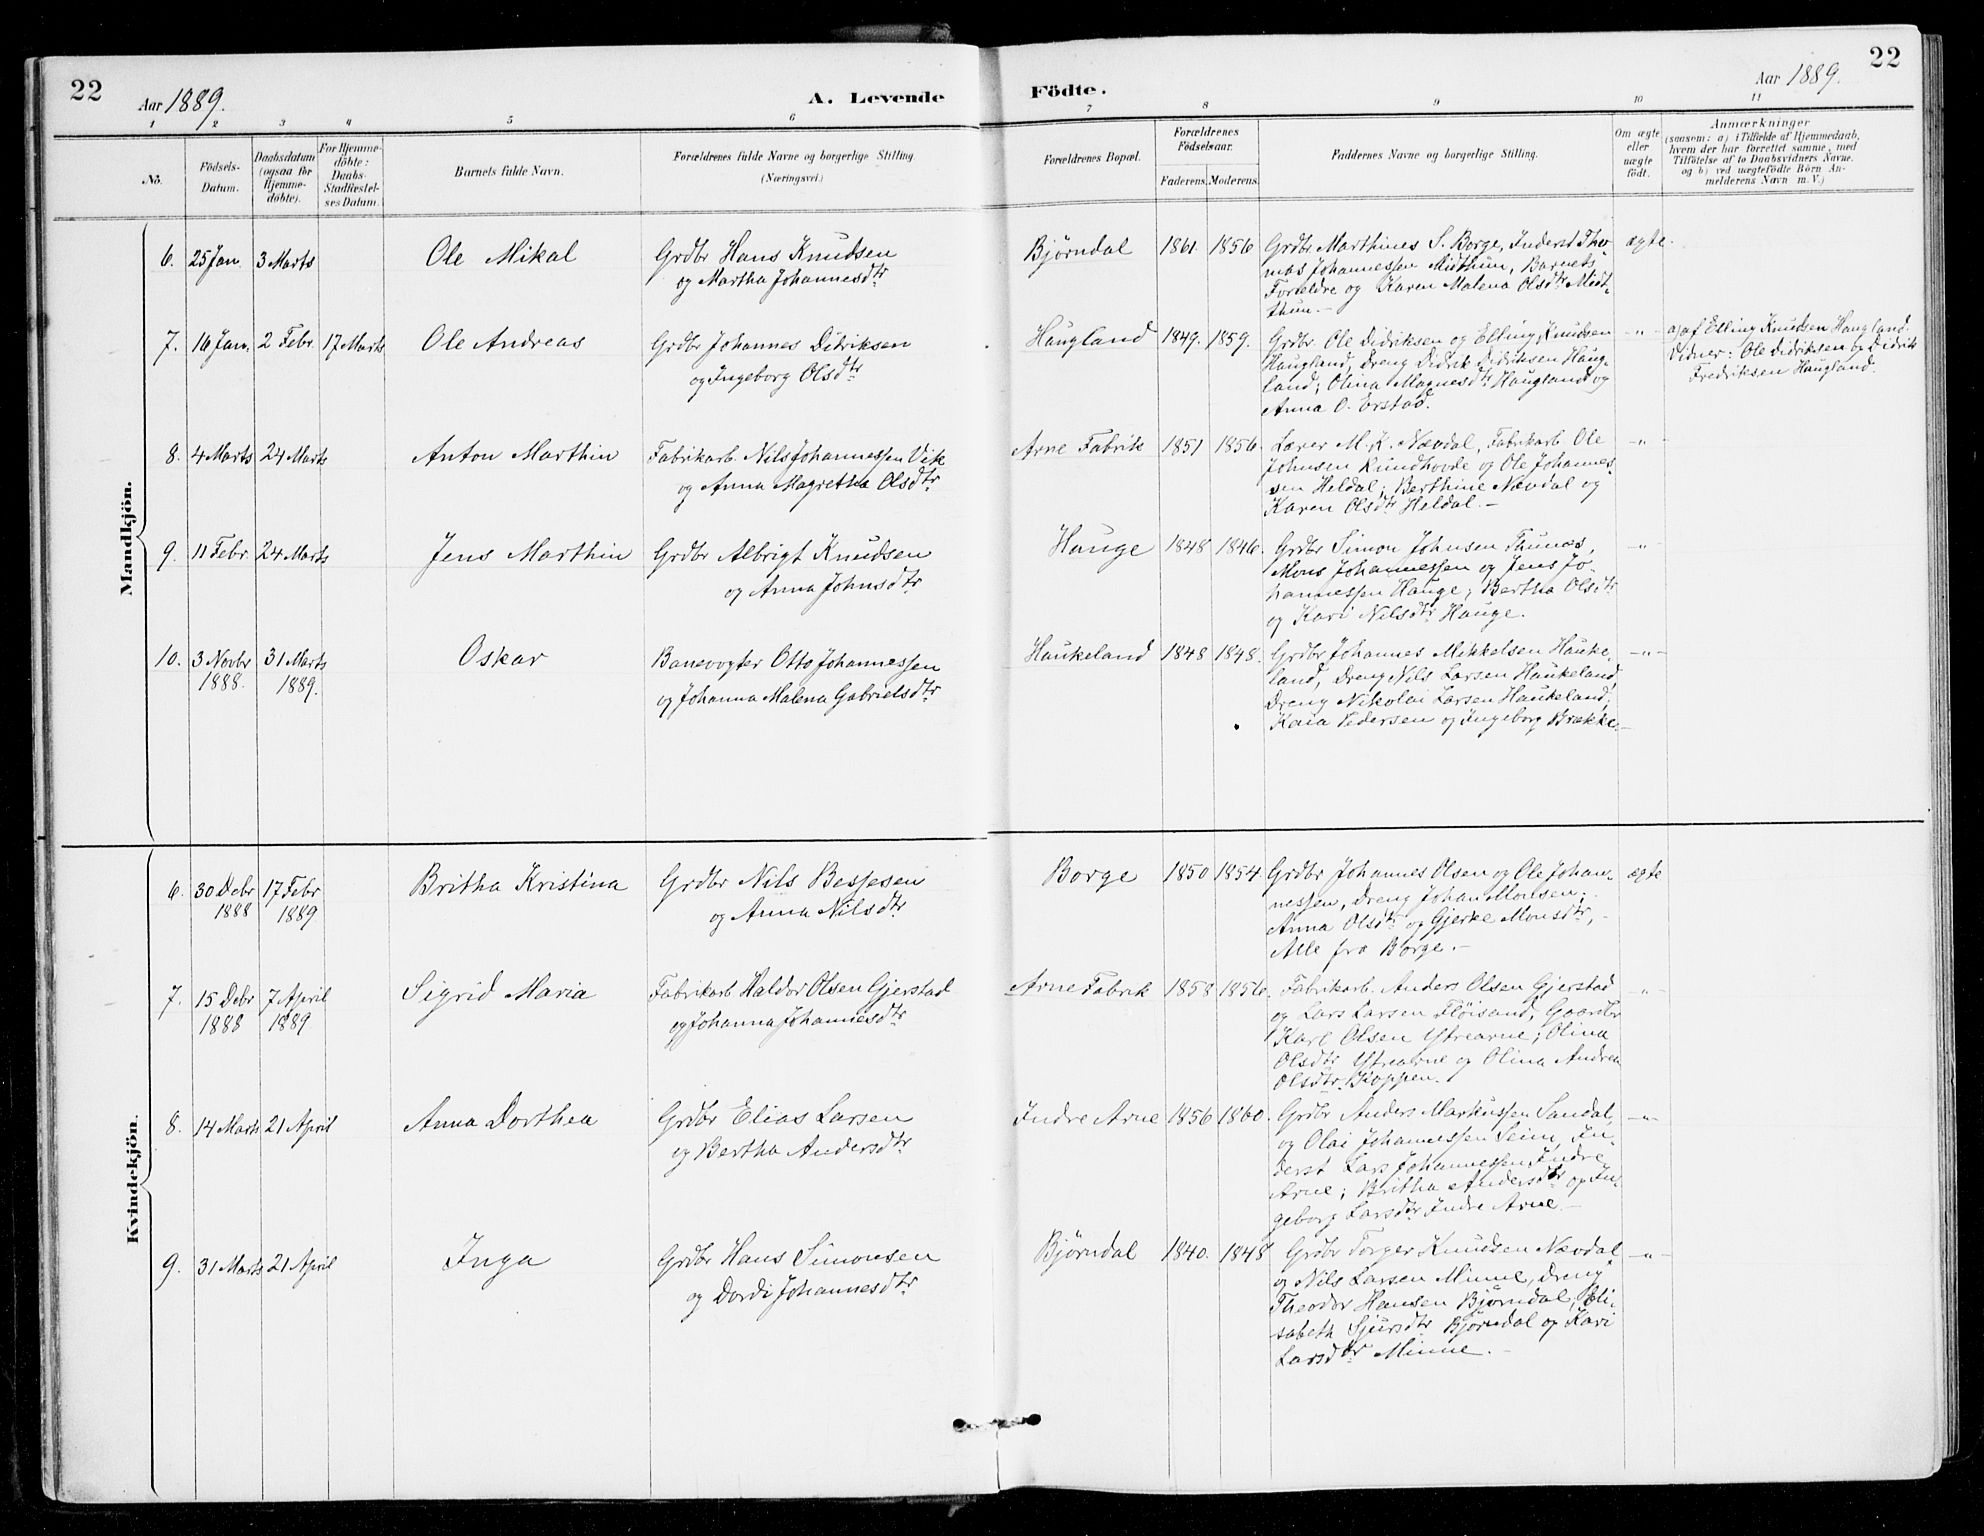 22
Aar 1889.
A. Levende
Födte.
Aar 1889.
22
1 2 3 4 5 6 7 8 9 10 11
No.
Födsels-
Datum.
Daabsdatum
(ogsaa for
Hjemme-
døbte).
For Hjemme-
döbte:
Daabs-
Stadfæstel-
ses Datum.
Barnets fulde Navn.
Forældrenes fulde Navne og borgerlige Stilling.
(Næringsvei.)
Forældrenes Bopæl.
Forældrenes
Födselsaar.
Faderens. Moderens.
Faddernes Navne og borgerlige Stilling.
Om ægte
eller
uægte
födt.
Anmærkninger
(saasom: a) i Tilfælde af Hjemmedaab,
hvem der har forrettet samme, med
Tilföielse af to Daabsvidners Navne.
og b) ved uægtefödte Börn An-
melderens Navn m. V.)
Mandkjön.
6. 25 Jan. 3 Marts Ole Mikal
Grdbr Hans Knudsen
og Martha Johannesdtr
Bjørndal 1861 1856
Grdbr Marthines S. Borge, Inderst Tho-
mas Johannessen Midthun, Barnets
Forældre og Karen Malena Olsdtr Midt-
thun.-
ægte.
7. 16 Jan. 2 Febr. 17 Marts Ole Andreas
Grdbr Johannes Didriksen
og Ingeborg Olsdtr
Haugland 1849. 1859.
Grdbr. Ole Didriksen og Elling Knudsen
Haugland, Dreng Didrik Didriksen Haug-
land; Olina Magnesdtr Haugland og
Anna O. Erstad.
-"-
a) af Elling Knudsen Haugland.
Vidner: Ole Didriksen og Didrik
Fredriksen Haugland.
8. 4 Marts 24 Marts Anton Marthin
Fabrikarb. Nils Johannessen Vik
og Anna Magretha Olsdtr
Arne Fabrik 1851 1856.
Lærer M. K. Nævdal, Fabrikarb. Ole
Johnsen Rundhovde og Ole Johannes-
sen Heldal; Berthine Nævdal og
Karen Olsdtr Heldal.-
-"-
9. 11 Febr. 24 Marts Jens Marthin
Grdbr Albrigt Knudsen
og Anna Johnsdtr
Hauge 1848 1846.
Grdbr Simon Johnsen Thunæs,
Mons Johannessen og Jens Jo-
hannessen Hauge; Bertha Olsdtr
og Kari Nilsdtr Hauge.
-"-
10. 3 Novbr 1888. 31 Marts 1889. Oskar
Banevogter Otto Johannessen
og Johanna Malena Gabrielsdtr
Haukeland 1848 1848.
Grdbr Johannes Mikkelsen Hauke-
land, Dreng Nils Larsen Haukeland,
Dreng Nikolai Larsen Haukeland;
Kaia Pedersen og Ingeborg Brække.-
-"-
Kvindekjön.
6. 30 Debr 1888 17 Febr 1889 Britha Kristina
Grdbr Nils Besjesen
og Anna Nilsdtr
Borge 1850 1854.
Grdbr Johannes Olsen og Ole Johan-
nessen, Dreng Johan Monsen;
Anna Olsdtr og Gjerke Monsdtr,-
Alle fra Borge.-
ægte
7. 15 Debr 1888 7 April 1889. Sigrid Maria
Fabrikarb Haldor Olsen Gjerstad
og Johanna Johannesdtr
Arne Fabrik 1858 1856.
Fabrikarb. Anders Olsen Gjerstad
og Lars Larsen Fløisand, Gaardbr
Karl Olsen Ytrearne; Olina
Olsdtr Ytrearne og Olina Andrea
Olsdtr Koppen.
-"-
8. 14 Marts 21 April Anna Dorthea
Grdbr Elias Larsen
og Bertha Andersdtr
Indre Arne 1856 1860.
Grdbr Anders Markussen Sandal,
og Olai Johannessen Seim, In-
derst Lars Johannessen Indre
Arne; Britha Andersdtr og In-
geborg Larsdtr Indre Arne.-
-"-
9. 31 Marts 21 April Inga
Grdbr Hans Simonsen
og Dordi Johannesdtr
Bjørndal 1840. 1848
Grdbr Torger Knudsen Nævdal
og Nils Larsen Minne, Dreng
Theodor Hansen Bjørndal, Eli-
sabeth Sjursdtr Bjørndal og Kari
Larsdtr Minne.-
-"-